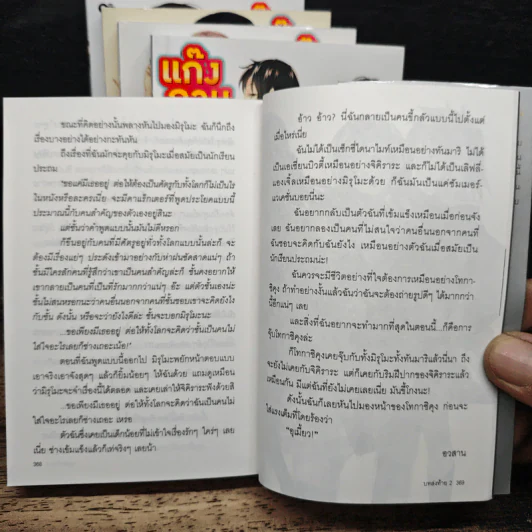 แก๊ง
ขณะที่คิดอย่างนั้นพลางหันไปมองมิรุโมะ ฉันก็นึกถึง
เรื่องบางอย่างได้อย่างกะทันหัน
ถึงเรื่องที่ฉันมักจะคุยกับมิรุโมะเมื่อสมัยเป็นนักเรียน
ประถม
'ขอแค่มีเธออยู่ ต่อให้ต้องเป็นศัตรูกับทั้งโลกก็ไม่เป็นไร
ในหนังหรือละครเนี่ย จะมีคาแร็กเตอร์ที่พูดประโยคแบบนี้
ประมาณนี้กับคนสำคัญของตัวเองอยู่สินะ
แต่ชั้นว่าคำพูดแบบนั้นมันไม่ดีหรอก
ก็ยืนอยู่กับคนที่มีศัตรูอยู่ทั่วทั้งโลกแบบนั้นล่ะก็ จะ
ต้องมีเรื่องแย่ๆ ประดังเข้ามาอย่างกับห่าฝนซัดสาดแน่ๆ ถ้า
ชั้นมีใครสักคนที่รู้สึกว่าเขาเป็นคนสำคัญล่ะก็ ชั้นคงอยากให้
เขากลายเป็นคนที่เป็นที่รักมากกว่าแน่ๆ อ๊ะ แต่ตัวชั้นเองน่ะ
ชั้นไม่สนหรอกนะว่าคนอื่นนอกจากคนที่ชั้นชอบเขาจะคิดยังไง
กับชั้น ดังนั้น หรือจะว่ายังไงดีล่ะ ชั้นจะบอกมิรุโมะนะ
...ขอเพียงมีเธออยู่ ต่อให้ทั้งโลกจะคิดว่าชั้นเป็นคนไม่
ได้ใจอะไรเลยก็ช่างเถอะเนอะ!'
ตอนที่ฉันพูดแบบนี้ออกไป มิรุโมะพยักหน้าตอบแบบ
เอาจริงเอาจังสุดๆ แล้วก็ยิ้มน้อยๆ ให้ฉันด้วย แถมดูเหมือน
ว่ามิรุโมะจะจำเรื่องนี้ได้ตลอด และเคยเล่าให้จิคิราระฟังด้วยสิ
...ขอเพียงมีเธออยู่ ต่อให้ทั้งโลกจะคิดว่าฉันเป็นคนไม่
ได้ใจอะไรเลยก็ช่างเถอะ เหรอ
ตัวฉันซึ่งเคยเป็นเด็กน้อยที่ไม่เข้าใจเรื่องรักๆ ใคร่ๆ เลย
เนี่ย ช่างเข้มแข็งแล้วก็เท่จริงๆ เลยน้า
368
อ้าว อ้าว? นี่ฉันกลายเป็นคนขี้กลัวแบบนี้ไปตั้งแต่
เมื่อไหร่เนี่ย
ฉันไม่ได้เป็นเซ็กซี่ไดนาไมท์เหมือนอย่างทันมาริ ไม่ได้
เป็นเอเชียนบิวตี้เหมือนอย่างจิคิราระ และก็ไม่ได้เป็นลิฟลี่-
แองเจิ้ลเหมือนอย่างมิรุโมะด้วย ก็ฉันมันเป็นแค่ซัมเมอร์-
แนคชั่นบอยนี่นะ
ฉันอยากกลับเป็นตัวฉันที่เข้มแข็งเหมือนเมื่อก่อนจัง
เลย ฉันอยากลองเป็นคนที่ไม่สนใจว่าคนอื่นนอกจากคนที่
ฉันชอบจะคิดกับฉันยังไง เหมือนอย่างตัวฉันเมื่อสมัยเป็น
นักเรียนประถมน่ะ!
ฉันควรจะมีชีวิตอย่างที่ใจต้องการเหมือนอย่างโทกา-
ชิคุง ถ้าทำอย่างงั้นแล้วฉันว่าฉันจะต้องถ่ายรูปดีๆ ได้มากกว่า
นี้อีกแน่ๆ เลย
และสิ่งที่ฉันอยากจะทำมากที่สุดในตอนนี้...ก็คือการ
จุ๊บโทกาชิคุงล่ะ
ก็โทกาชิคุงเคยจุ๊บกับทั้งมิรุโมะทั้งทันมาริแล้วนี่นา ถึง
จะยังไม่เคยกับจิคิราระ แต่ก็เคยกับริมฝีปากของจิคิราระแล้ว
เหมือนกัน มีแต่ฉันที่ยังไม่เคยเลยเนี่ย มันขี้โกงนะ!
ดังนั้นฉันก็เลยหันไปมองหน้าของโทกาชิคุง ก่อนจะ
ใส่แรงเต็มที่โดยร้องว่า
"ฮุเมี้ยว!"
อวสาน
บทส่งท้าย 2 369